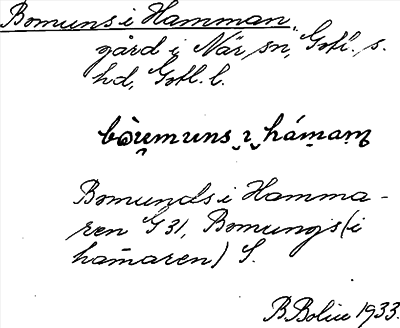 Bomuns i Hamman
gård i När sn, Gotl. s.
hd, Gotl. l.
bòu̯muns ı hámam
Bomunds i Hamma-
ren G 31, Bomungs (i
ham̄aren) S.
B Bolin 1933.